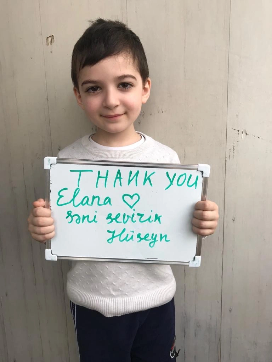 THANK YOU
Elana ♡
səni sevirik
Hüseyn